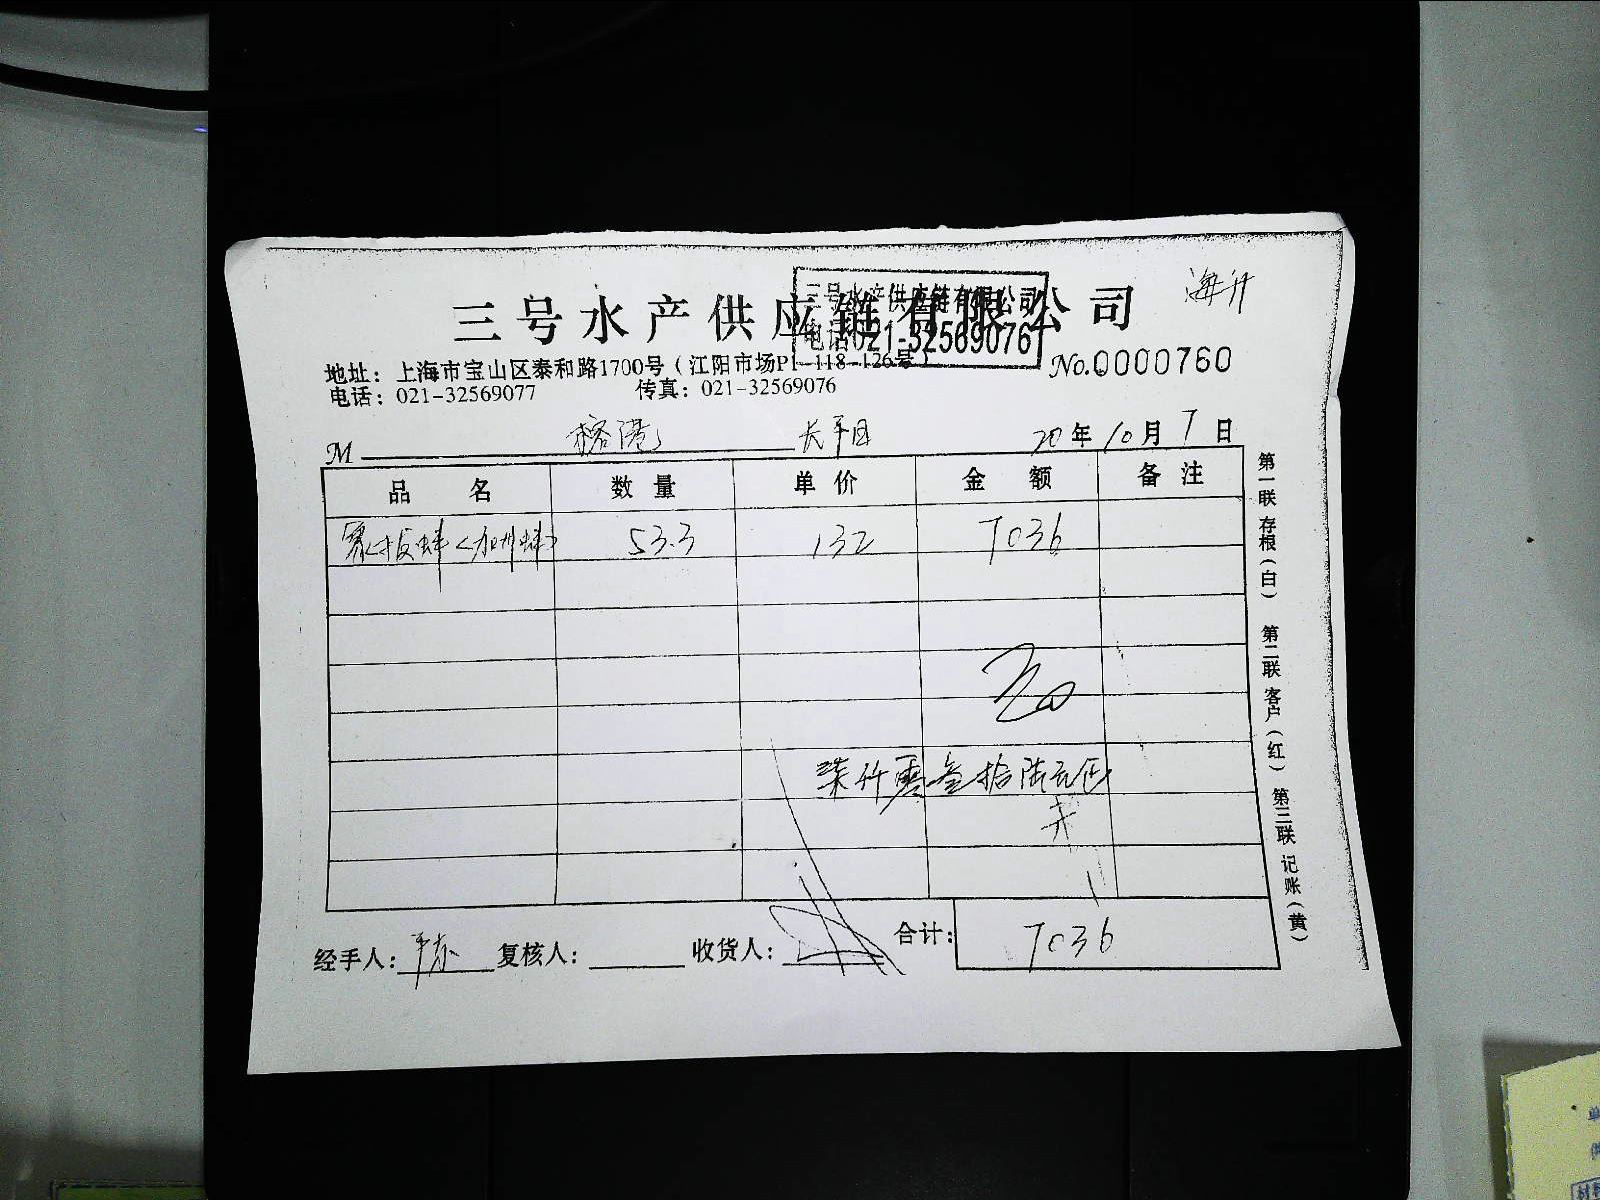 海升
三号水产供应链有限公司
三号水产供应链有限公司
电话:021-32569076
地址：上海市宝山区泰和路1700号（江阳市场P1-118-126号）
No.0000760
电话：021-32569077 传真：021-32569076
M 榕港 20年10月7日
品名 数量 单价 金额 备注
象拔蚌<加州蚌> 53.3 132 7036
柒仟零叁拾陆元正
经手人： 复核人： 收货人： 合计： 7036
第一联 存根（白） 第二联 客户（红） 第三联 记账（黄）